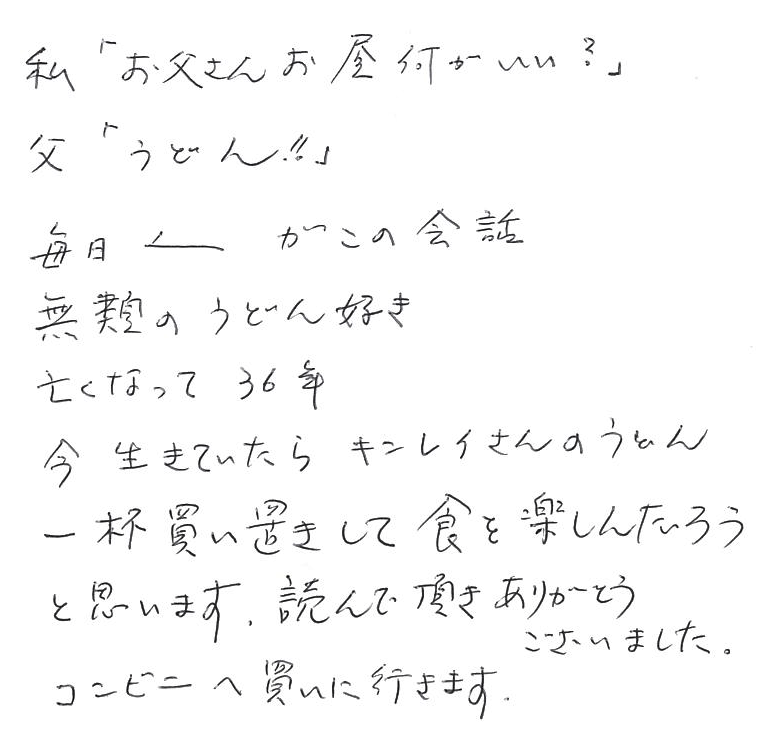 私「お父さんお昼何がいい?」
父「うどん!!」
毎日 がこの会話
無類のうどん好き
亡くなって 36年
今 生きていたら キンレイさんのうどん
一杯買い置きして 食を楽しんだろう
と思います. 読んで頂きありがとう
ございました。
コンビニへ買いに行きます.